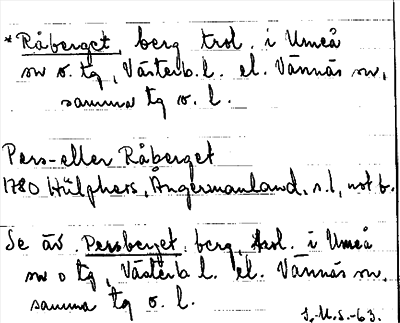 *Råberget, berg trol. i Umeå
sn o. tg, Västerb. l. el. Vännäs sn,
samma tg o. l.
Pers- eller Råberget
1780 Hülphers, Ångermanland, s. 1, not b.
Se äv. Persberget, berg, trol. i Umeå
sn o tg, Västerb l. el. Vännäs sn.
samma tg o. l.
S.M.S.-63.